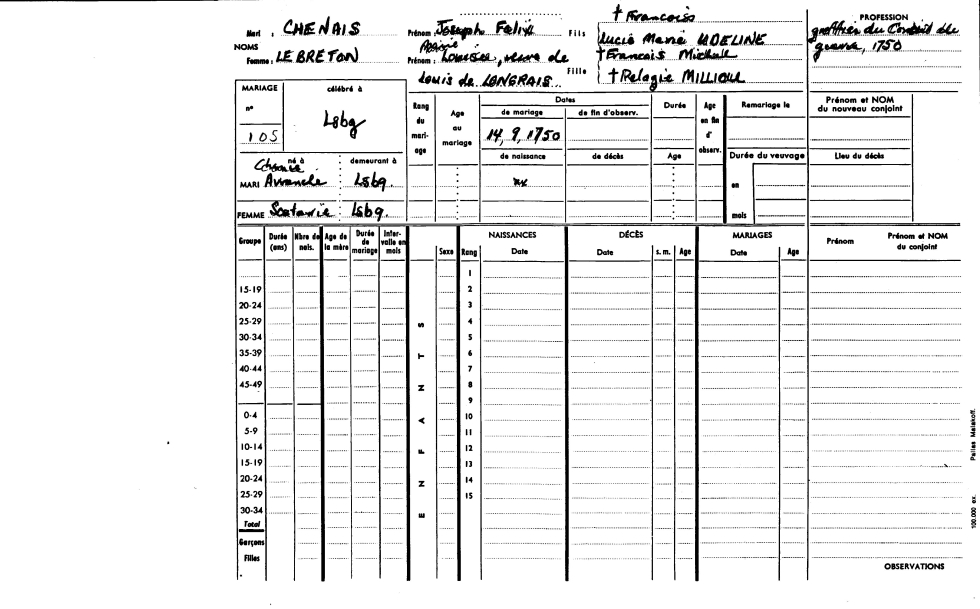 † Francois
Mari : CHENAIS Prénom : Joseph Felix Fils Lucie Marie UDELINE
NOMS
Femme : LE BRETON Prénom : Louise, veuve de Louis de LONGRAIS Fille † Francois Michall
† Pelagie MILLIOUL
PROFESSION
greffier du Conseil de
guerre, 1750
MARIAGE célébré à
n°
105 Lsbg
Rang du mari-age
Age au mariage
Dates
de mariage de fin d'observ.
14, 9, 1750
de naissance de décès
xx
Durée
Age
Age en fin d' observ.
Remariage le
Durée du veuvage
en
mois
Prénom et NOM
du nouveau conjoint
Lieu du décès
né à demeurant à
MARI Avranche Lsbg.
FEMME Scatarie Lsbg.
Groupe Durée (ans) Nbre de nais. Age de la mère Durée de mariage Inter-valle en mois
ENFANTS
Sexe Rang
NAISSANCES
Date
DÉCÈS
Date s. m. Age
MARIAGES
Date Age
Prénom Prénom et NOM du conjoint
1
15-19 2
20-24 3
25-29 4
30-34 5
35-39 6
40-44 7
45-49 8
9
0-4 10
5-9 11
10-14 12
15-19 13
20-24 14
25-29 15
30-34
Total
Garçons
Filles
OBSERVATIONS
100.000 ex. Pallas Malakoff.